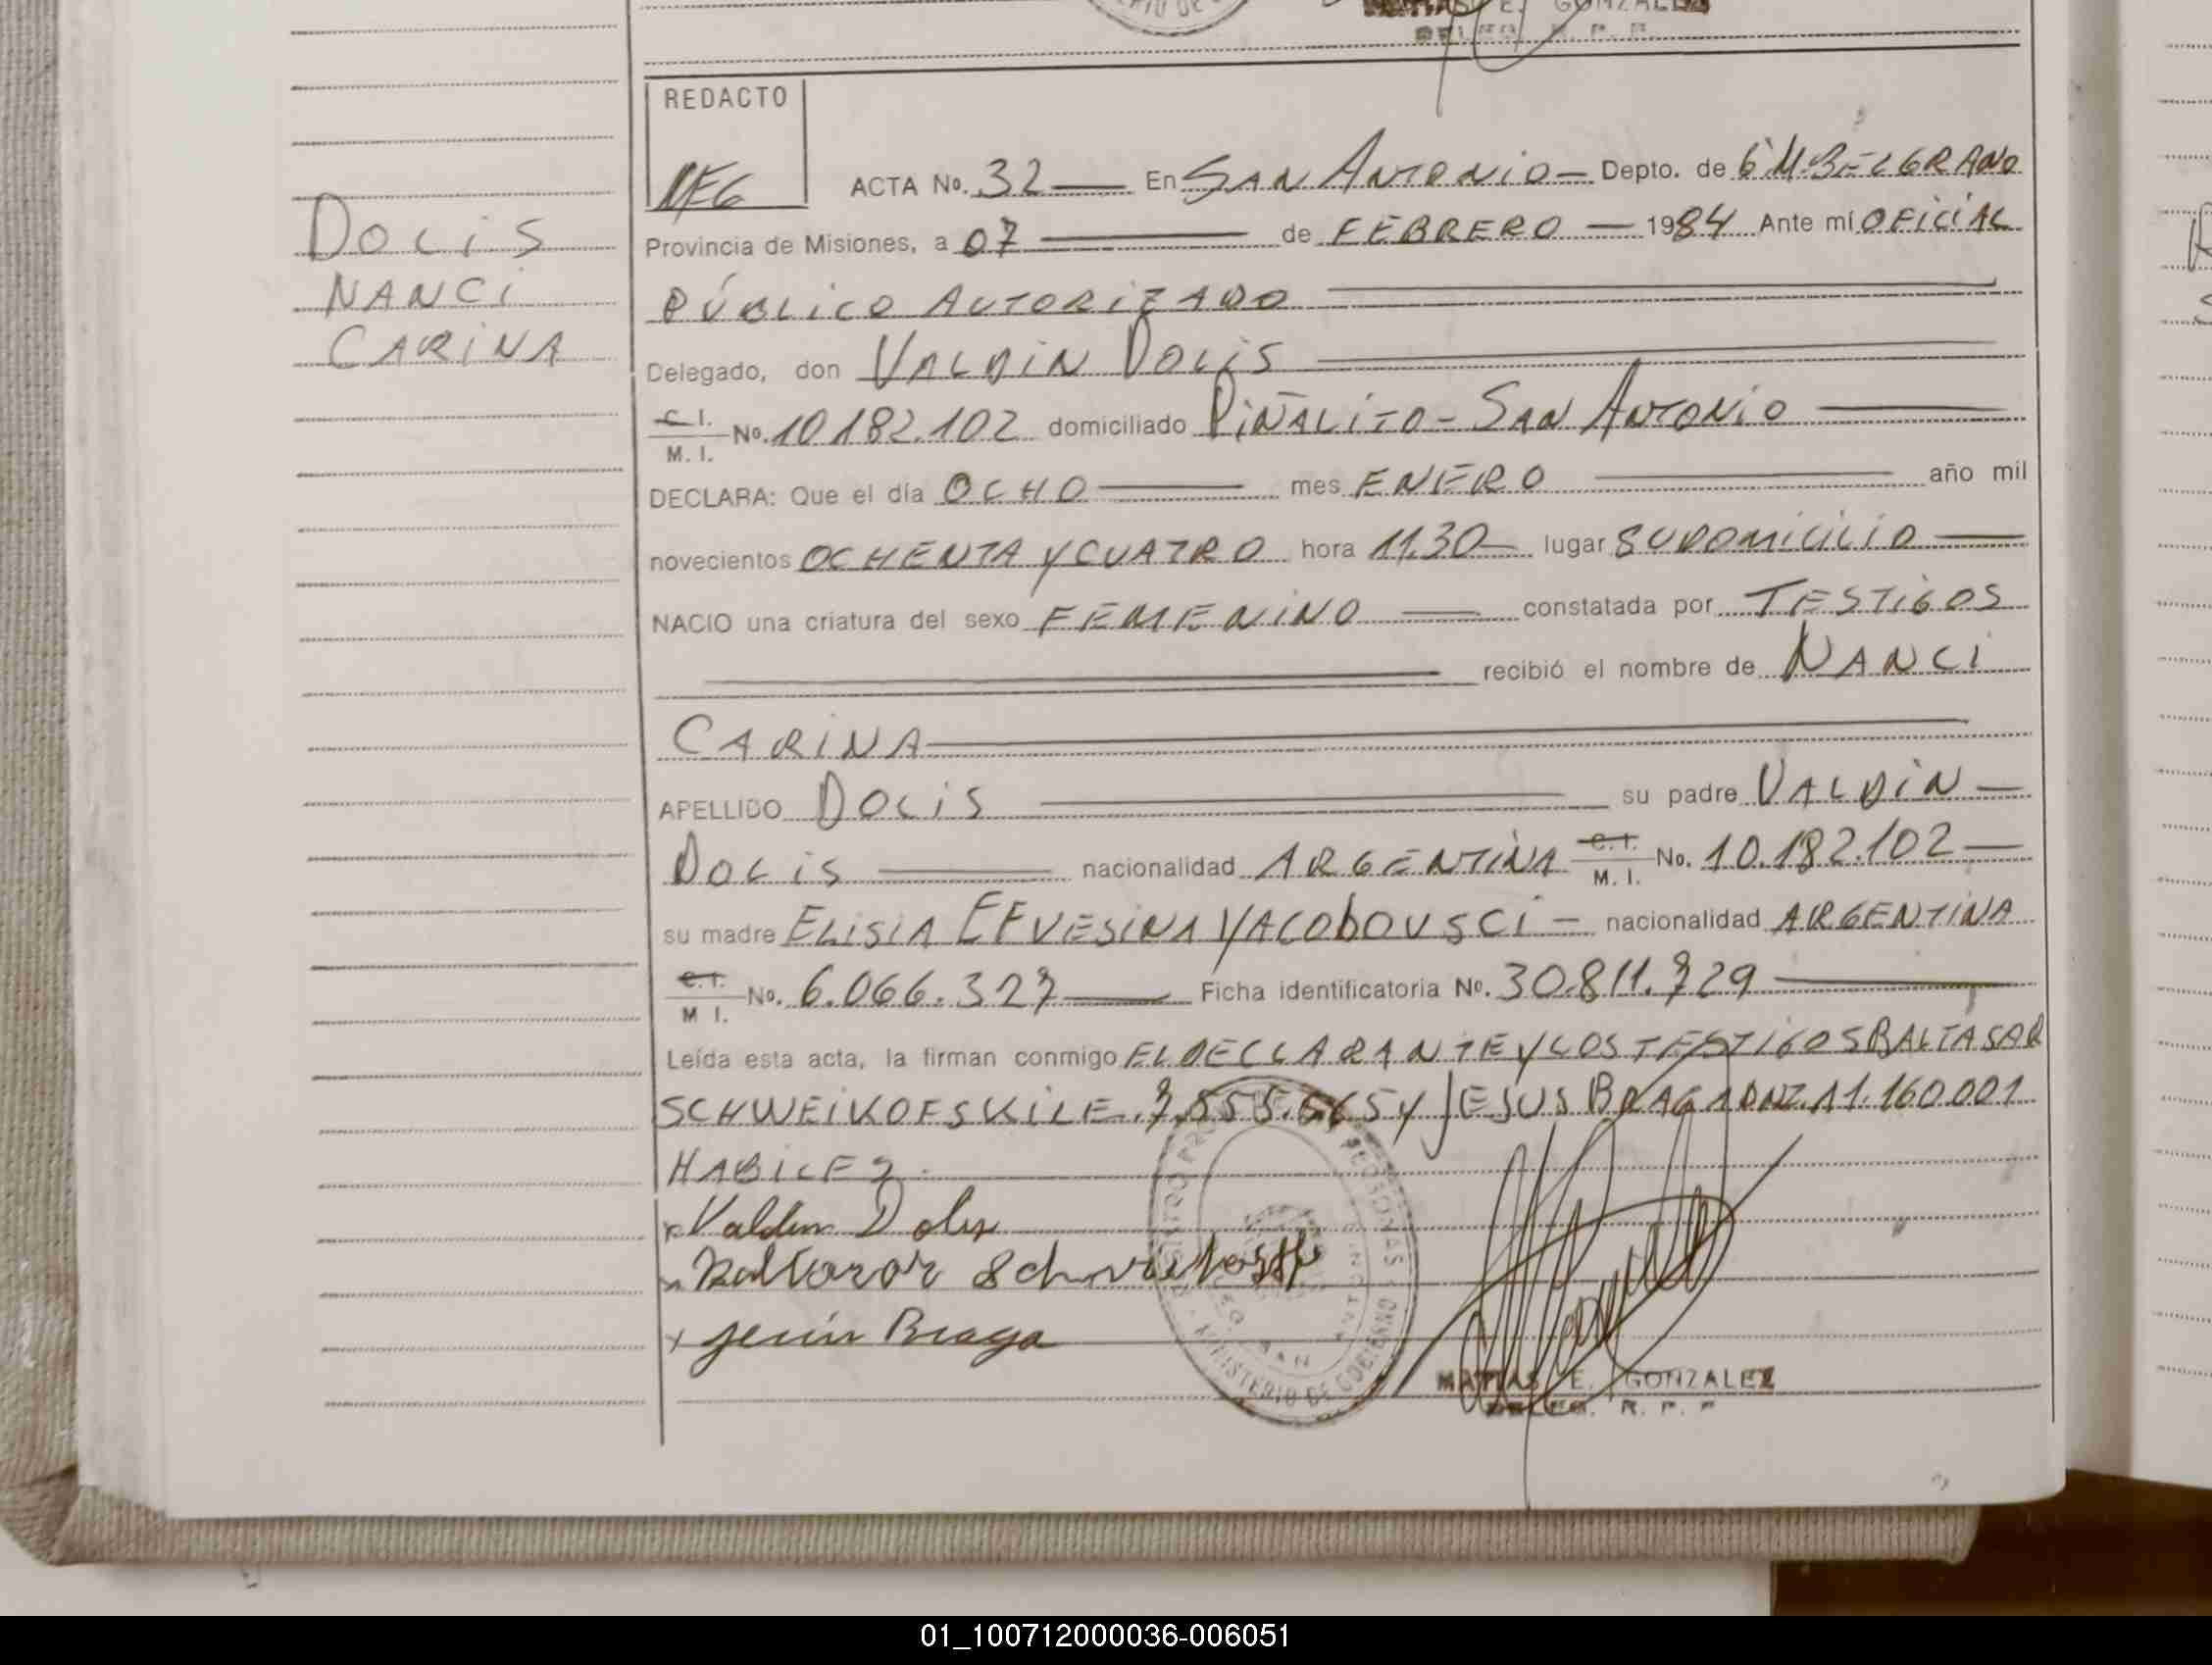 MATIAS E. GONZALEZ
DELEG. R. P. P.
REDACTO
MEG
ACTA No. 32 En SAN ANTONIO Depto. de G M. BELGRANO
DOLIS
NANCI
CARINA
Provincia de Misiones, a 07 de FEBRERO 1984 Ante mi OFICIAL
PÚBLICO AUTORIZADO
Delegado, don VALDIN DOLIS
C.I.
M. I. No. 10.182.102 domiciliado PIÑALITO - SAN ANTONIO
DECLARA: Que el día OCHO mes ENERO año mil
novecientos OCHENTA Y CUATRO hora 11.30 lugar SU DOMICILIO
NACIO una criatura del sexo FEMENINO constatada por TESTIGOS
recibió el nombre de NANCI
CARINA
APELLIDO DOLIS su padre VALDIN
DOLIS nacionalidad ARGENTINA C.I. M. I. No. 10.182.102
su madre ELISIA EFVESINA YACOBOVSCI nacionalidad ARGENTINA
C.I.
M I. No. 6.066.327 Ficha identificatoria No. 30.811.729
Leída esta acta, la firman conmigo EL DECLARANTE Y LOS TESTIGOS BALTASAR
SCHWEIKOFSKI L.E. 7.555.665 Y JESUS BRAGA DNI. 11.160.001
HABILES.
x Valdin Dolis
x Baltazar
x Jesús Braga
MATIAS E. GONZALEZ
DELEG. R. P. P
MINISTERIO DE GOBIERNO
01_100712000036-006051